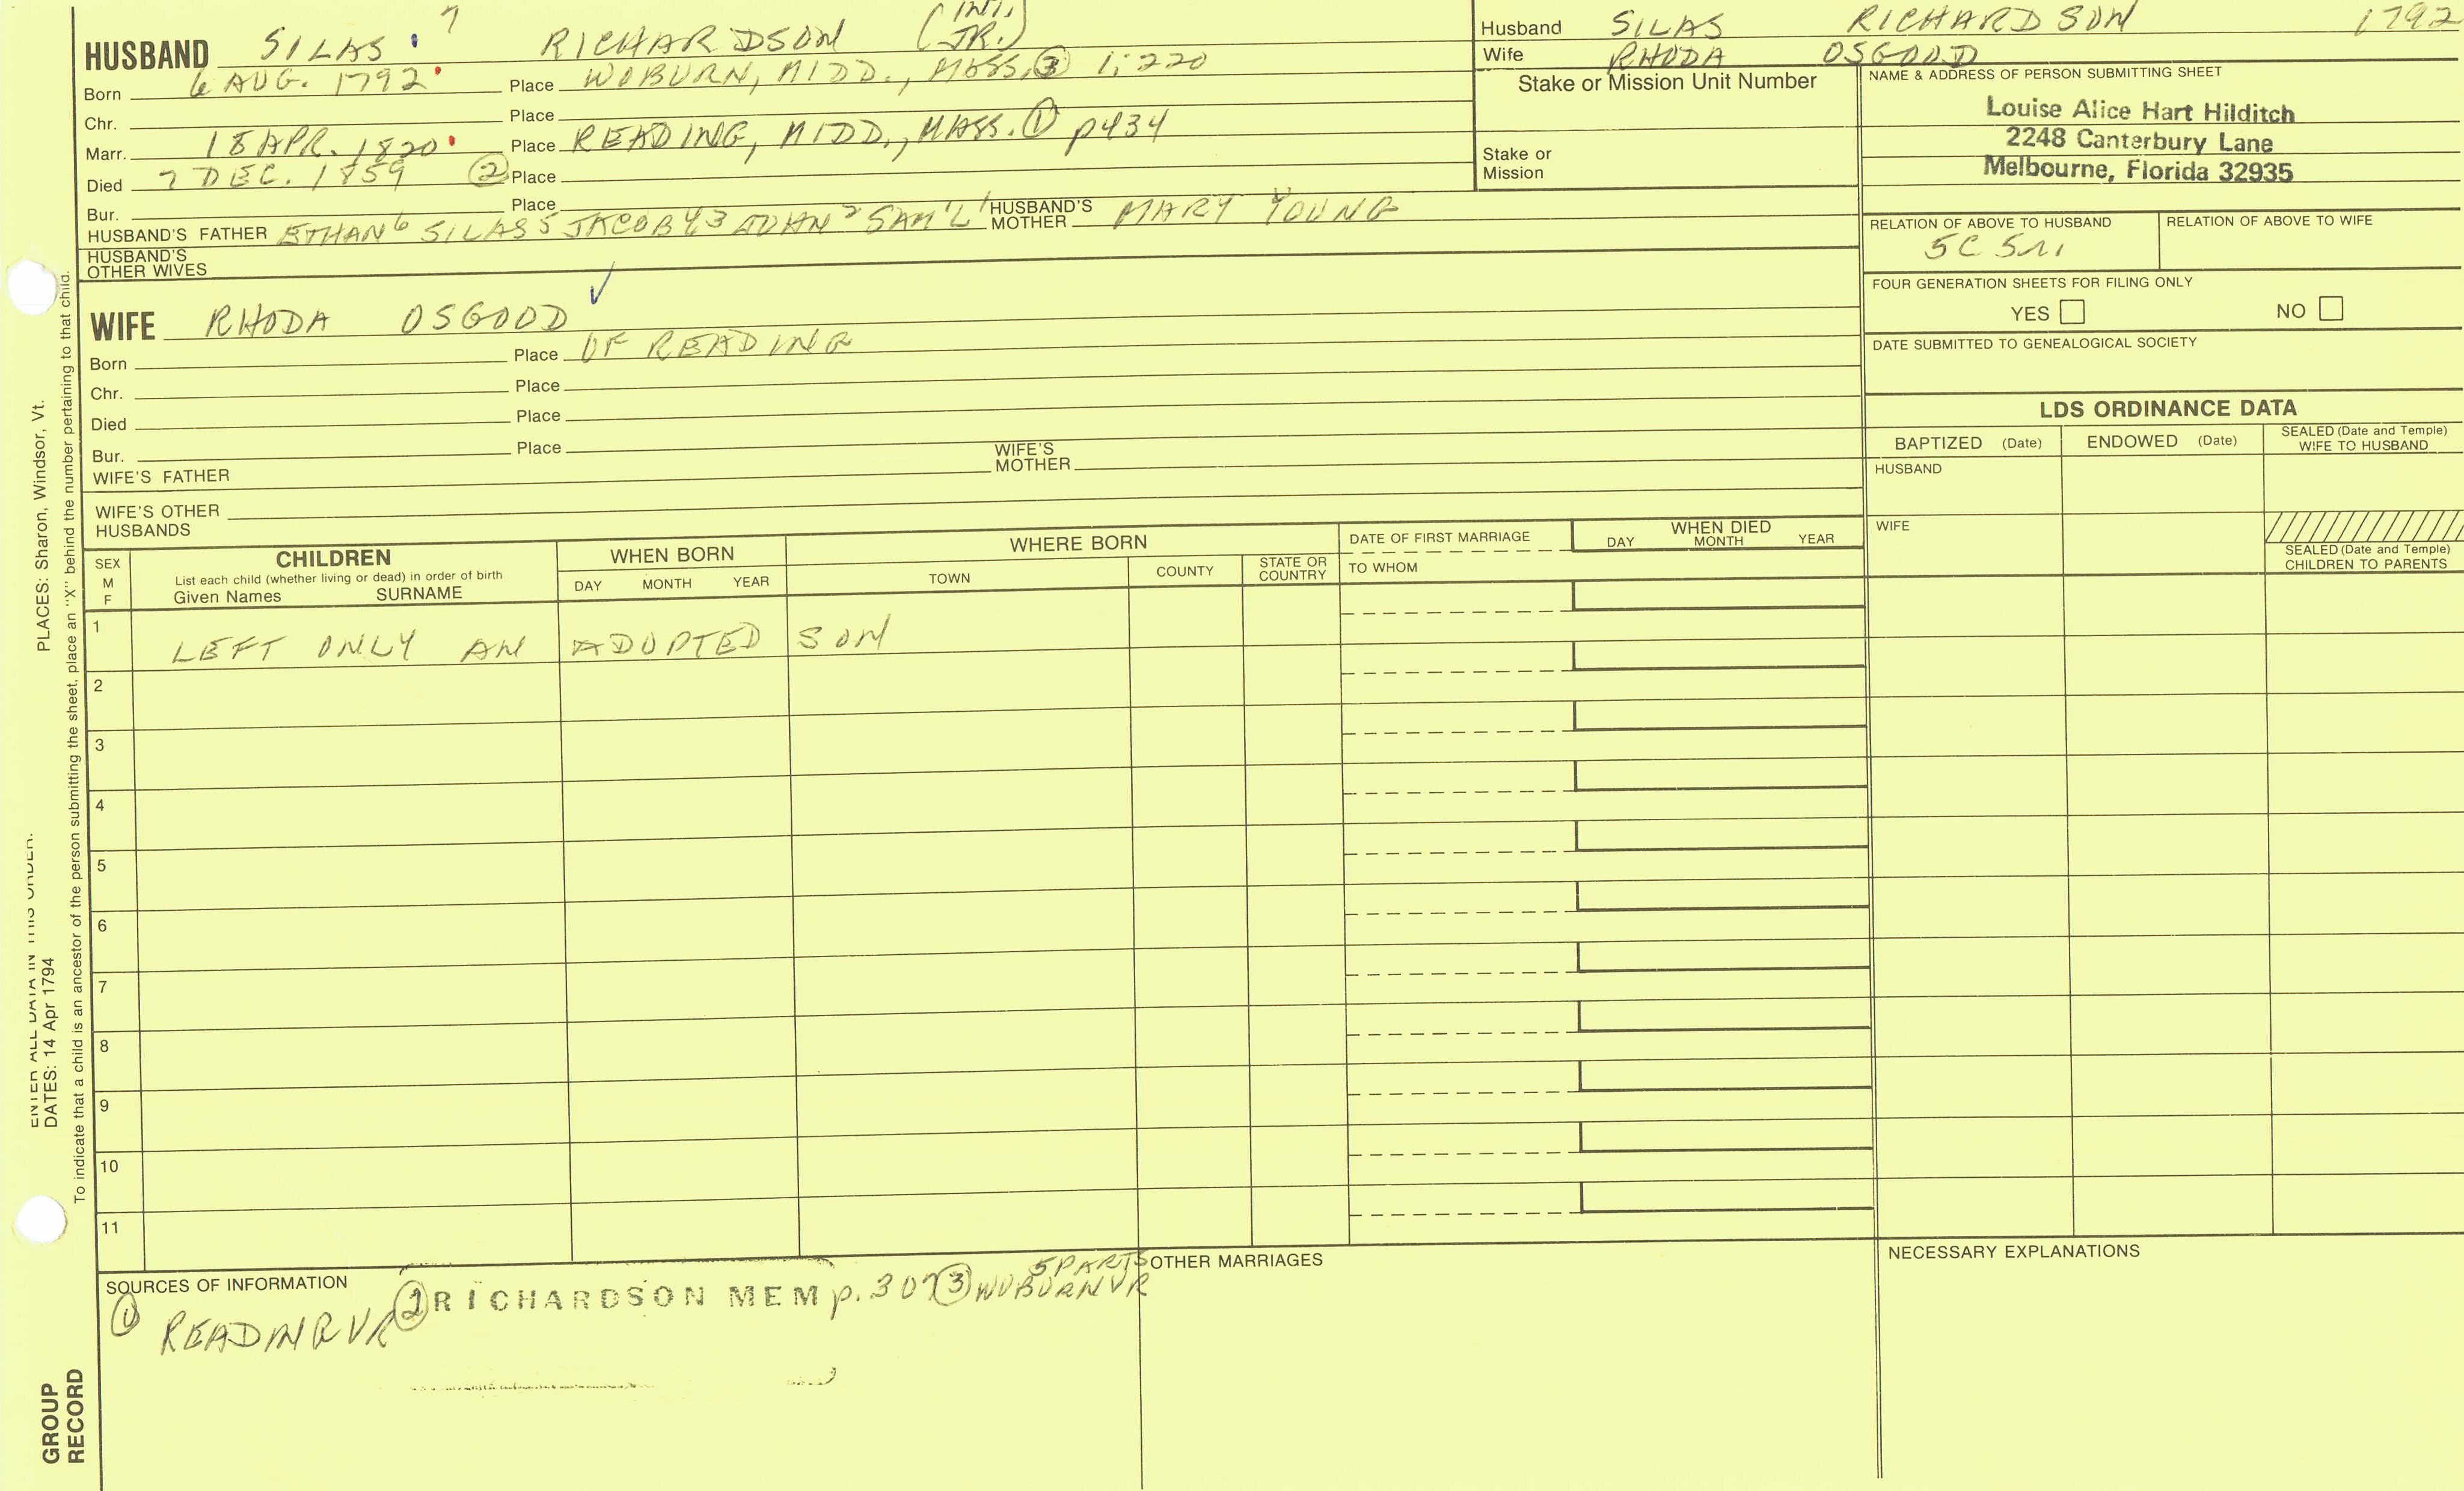 HUSBAND SILAS 7 RICHARDSON (INT. JR.)
Born 6 AUG. 1792 Place WOBURN, MIDD., MASS. ③ 1:220
Chr. Place
Marr. 18 APR. 1820 Place READING, MIDD., MASS. ① p434
Died 7 DEC. 1859 ② Place
Bur. Place
HUSBAND'S FATHER ETHAN 6 SILAS 5 JACOB 43 JOHN 2 SAM'L 1 HUSBAND'S MOTHER MARY YOUNG
HUSBAND'S OTHER WIVES
WIFE RHODA OSGOOD ✓
Born Place OF READING
Chr. Place
Died Place
Bur. Place
WIFE'S FATHER WIFE'S MOTHER
WIFE'S OTHER HUSBANDS
Husband SILAS RICHARDSON 1792
Wife RHODA OSGOOD
Stake or Mission Unit Number
Stake or Mission
NAME & ADDRESS OF PERSON SUBMITTING SHEET
Louise Alice Hart Hilditch
2248 Canterbury Lane
Melbourne, Florida 32935
RELATION OF ABOVE TO HUSBAND RELATION OF ABOVE TO WIFE
5C 5r.
FOUR GENERATION SHEETS FOR FILING ONLY
YES NO
DATE SUBMITTED TO GENEALOGICAL SOCIETY
LDS ORDINANCE DATA
BAPTIZED (Date) ENDOWED (Date) SEALED (Date and Temple) WIFE TO HUSBAND
HUSBAND
WIFE
SEALED (Date and Temple) CHILDREN TO PARENTS
SEX M F
CHILDREN
List each child (whether living or dead) in order of birth
Given Names SURNAME
WHEN BORN
DAY MONTH YEAR
WHERE BORN
TOWN COUNTY STATE OR COUNTRY
DATE OF FIRST MARRIAGE
TO WHOM
WHEN DIED
DAY MONTH YEAR
1 LEFT ONLY AN ADOPTED SON
2
3
4
5
6
7
8
9
10
11
SOURCES OF INFORMATION
① READING VR ② RICHARDSON MEM p. 307 ③ WOBURN VR 5 PARTS
OTHER MARRIAGES
NECESSARY EXPLANATIONS
PLACES: Sharon, Windsor, Vt.
ENTER ALL DATA IN THIS ORDER:
DATES: 14 Apr 1794
To indicate that a child is an ancestor of the person submitting the sheet, place an "X" behind the number pertaining to that child.
GROUP
RECORD